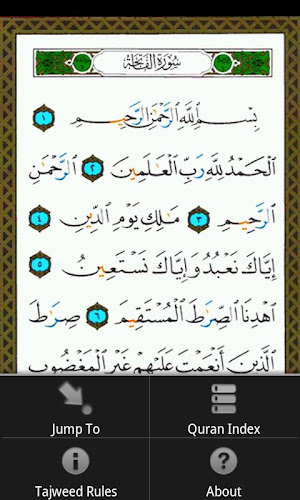 سُورَةُ الفَاتِحَةِ
بِسْمِ ٱللَّهِ ٱلرَّحْمَٰنِ ٱلرَّحِيمِ ١
ٱلْحَمْدُ لِلَّهِ رَبِّ ٱلْعَٰلَمِينَ ٢ ٱلرَّحْمَٰنِ
ٱلرَّحِيمِ ٣ مَٰلِكِ يَوْمِ ٱلدِّينِ ٤
إِيَّاكَ نَعْبُدُ وَإِيَّاكَ نَسْتَعِينُ ٥
ٱهْدِنَا ٱلصِّرَٰطَ ٱلْمُسْتَقِيمَ ٦ صِرَٰطَ
ٱلَّذِينَ أَنْعَمْتَ عَلَيْهِمْ غَيْرِ ٱلْمَغْضُوبِ
Jump To
Quran Index
Tajweed Rules
About